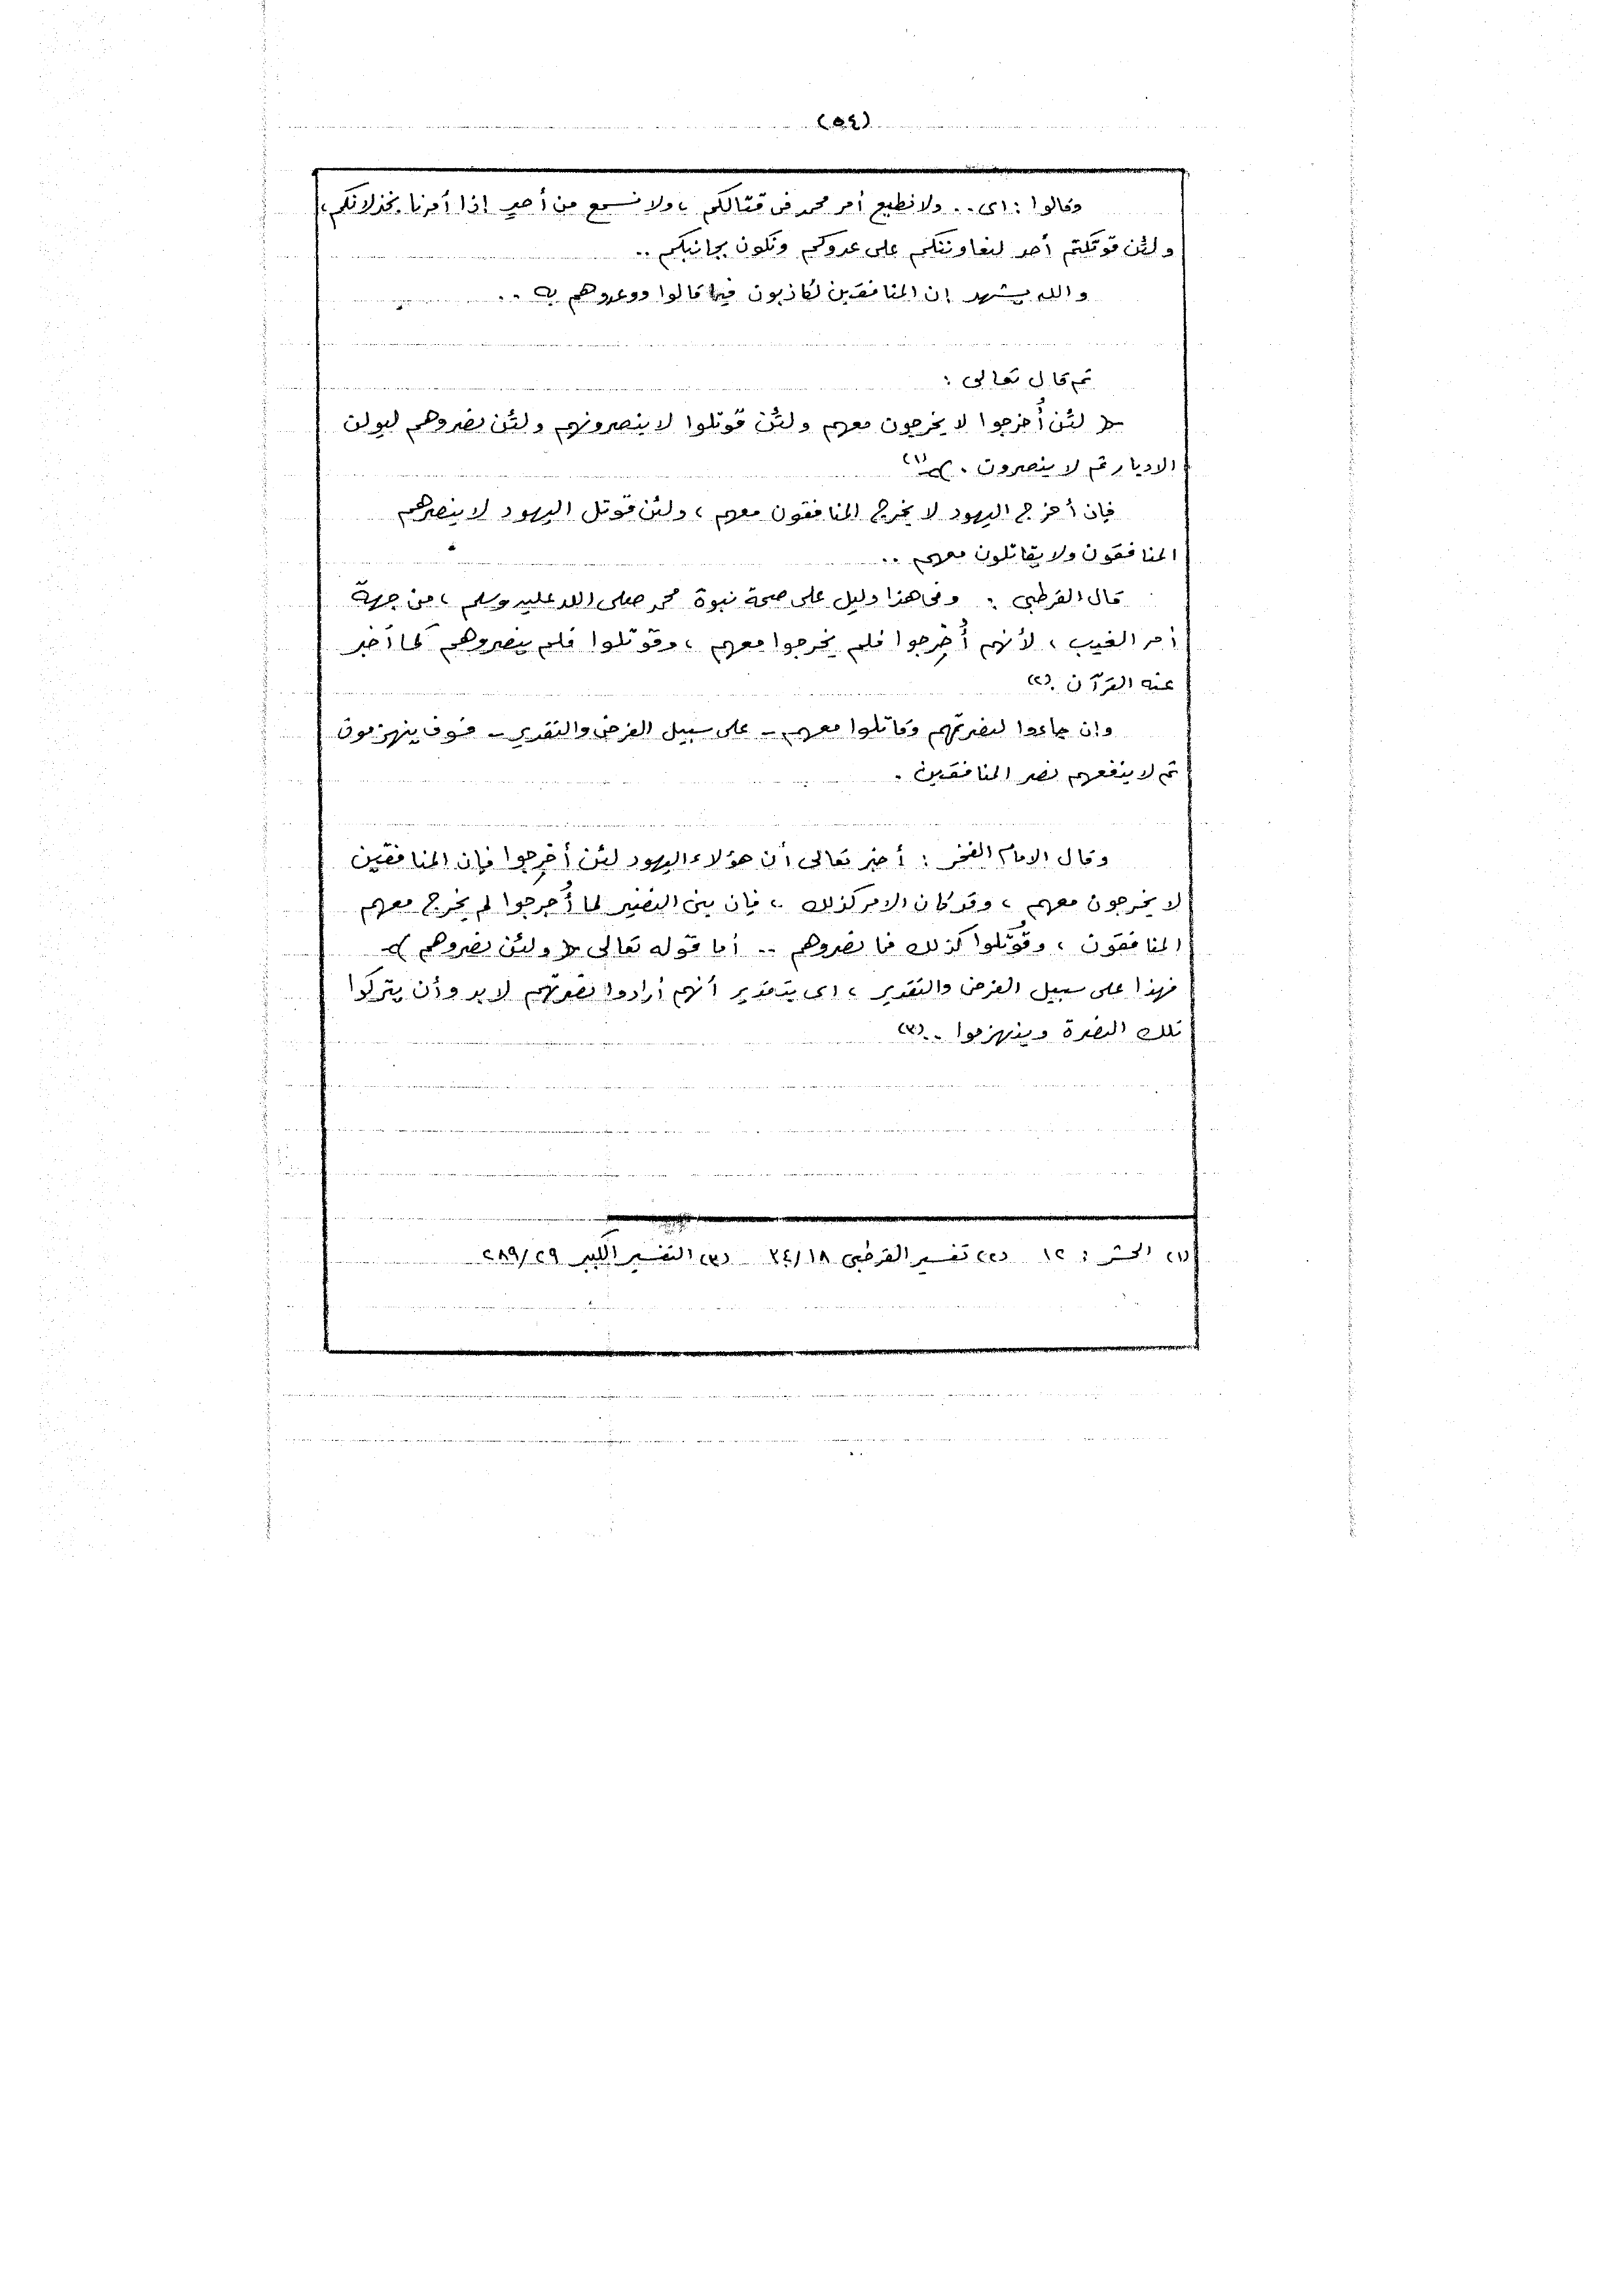 (٥٤)
وقالوا : اى .. ولا نطيع أمر محمد فى قتالكم ، ولا نسمع من أحدٍ إذا أمرنا بخذلانكم ،
ولئن قوتلتم أحد لنعاوننكم على عدوكم ونكون بجانبكم ..
والله يشهد إن المنافقين لكاذبون فيما قالوا ووعدوهم به ..
ثم قال تعالى :
﴿ لئن أُخرجوا لا يخرجون معهم ولئن قوتلوا لا ينصرونهم ولئن نصروهم ليولن
الادبار ثم لا ينصرون . ﴾ (١)
فإن أخرج اليهود لا يخرج المنافقون معهم ، ولئن قوتل اليهود لا ينصرهم
المنافقون ولا يقاتلون معهم ..
قال القرطبى : وفى هذا دليل على صحة نبوة محمد صلى الله عليه وسلم ، من جهة
أمر الغيب ، لأنهم أُخْرِجوا فلم يخرجوا معهم ، وقوتلوا فلم ينصروهم كما أخبر
عنه القرآن . (٢)
وإن جاءوا لنصرتهم وقاتلوا معهم - على سبيل الفرض والتقدير - فسوف ينهزمون
ثم لا ينفعهم نصر المنافقين .
وقال الامام الفخر : أخبر تعالى أن هؤلاء اليهود لئن أخرِجوا فإن المنافقين
لا يخرجون معهم ، وقد كان الامر كذلك ، فإن بنى النضير لما أُخرِجوا لم يخرج معهم
المنافقون ، وقُوتلوا كذلك فما نصروهم .. أما قوله تعالى ﴿ ولئن نصروهم ﴾
فهذا على سبيل الفرض والتقدير ، اى بتقدير أنهم أرادوا نصرتهم لابد وأن يتركوا
تلك النصرة وينهزموا .. (٣)
(١) الحشر : ١٢ (٢) تفسير القرطبى ٣٤/١٨ (٣) التفسير الكبير ٢٨٩/٢٩